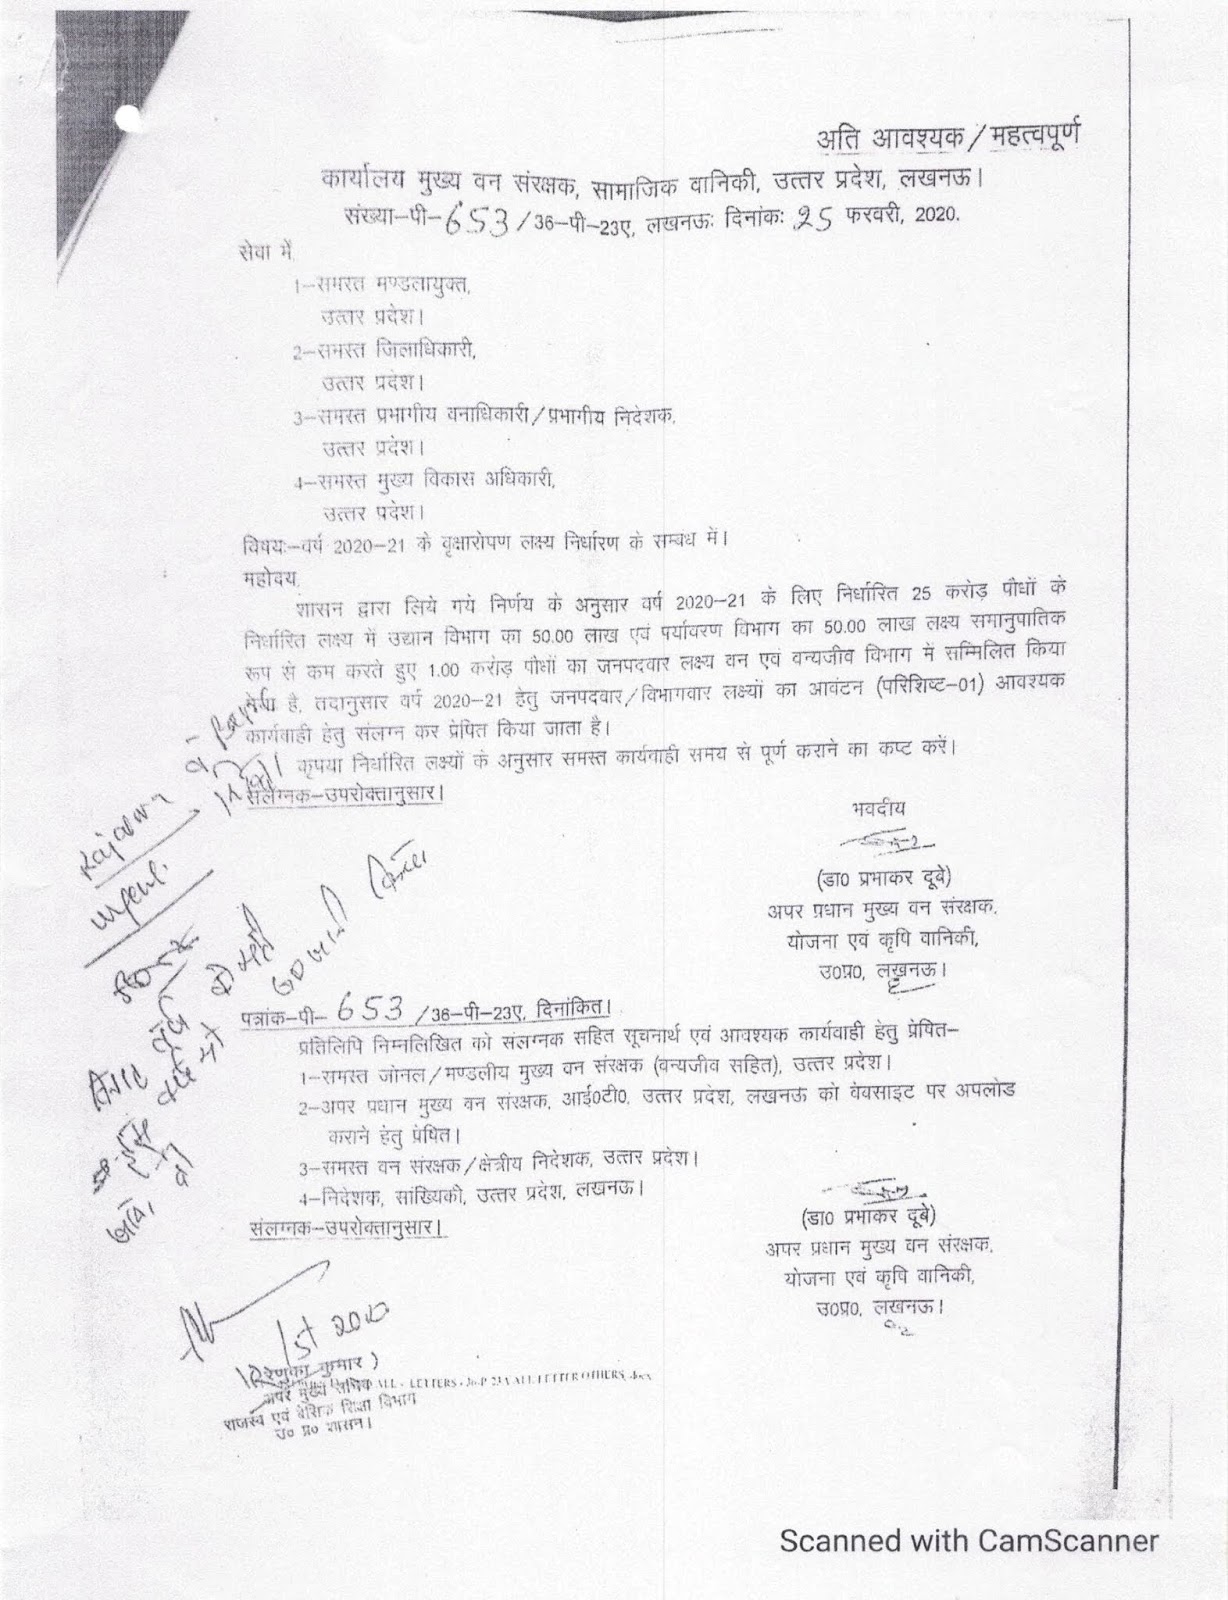 अति आवश्यक/महत्वपूर्ण
कार्यालय मुख्य वन संरक्षक, सामाजिक वानिकी, उत्तर प्रदेश, लखनऊ।
संख्या-पी-653/36-पी-23ए, लखनऊः दिनांकः 25 फरवरी, 2020.
सेवा में,
1-समस्त मण्डलायुक्त,
उत्तर प्रदेश।
2-समस्त जिलाधिकारी,
उत्तर प्रदेश।
3-समस्त प्रभागीय वनाधिकारी/प्रभागीय निदेशक,
उत्तर प्रदेश।
4-समस्त मुख्य विकास अधिकारी,
उत्तर प्रदेश।
विषयः-वर्ष 2020-21 के वृक्षारोपण लक्ष्य निर्धारण के सम्बंध में।
महोदय,
शासन द्वारा लिये गये निर्णय के अनुसार वर्ष 2020-21 के लिए निर्धारित 25 करोड़ पौधों के
निर्धारित लक्ष्य में उद्यान विभाग का 50.00 लाख एवं पर्यावरण विभाग का 50.00 लाख लक्ष्य समानुपातिक
रूप से कम करते हुए 1.00 करोड़ पौधों का जनपदवार लक्ष्य वन एवं वन्यजीव विभाग में सम्मिलित किया
गया है, तदानुसार वर्ष 2020-21 हेतु जनपदवार/विभागवार लक्ष्यों का आवंटन (परिशिष्ट-01) आवश्यक
कार्यवाही हेतु संलग्न कर प्रेषित किया जाता है।
कृपया निर्धारित लक्ष्यों के अनुसार समस्त कार्यवाही समय से पूर्ण कराने का कष्ट करें।
संलग्नक-उपरोक्तानुसार।
भवदीय
(डा0 प्रभाकर दूबे)
अपर प्रधान मुख्य वन संरक्षक,
योजना एवं कृषि वानिकी,
उ0प्र0, लखनऊ।
पत्रांक-पी- 653 /36-पी-23ए, दिनांकित।
प्रतिलिपि निम्नलिखित को संलग्नक सहित सूचनार्थ एवं आवश्यक कार्यवाही हेतु प्रेषित-
1-समस्त जोनल/मण्डलीय मुख्य वन संरक्षक (वन्यजीव सहित), उत्तर प्रदेश।
2-अपर प्रधान मुख्य वन संरक्षक, आई0टी0, उत्तर प्रदेश, लखनऊ को वेबसाइट पर अपलोड
कराने हेतु प्रेषित।
3-समस्त वन संरक्षक/क्षेत्रीय निदेशक, उत्तर प्रदेश।
4-निदेशक, सांख्यिकी, उत्तर प्रदेश, लखनऊ।
संलग्नक-उपरोक्तानुसार।
(डा0 प्रभाकर दूबे)
अपर प्रधान मुख्य वन संरक्षक,
योजना एवं कृषि वानिकी,
उ0प्र0, लखनऊ।
(रेणुका कुमार)
अपर मुख्य सचिव
राजस्व एवं बेसिक शिक्षा विभाग
उ० प्र० शासन।
Scanned with CamScanner